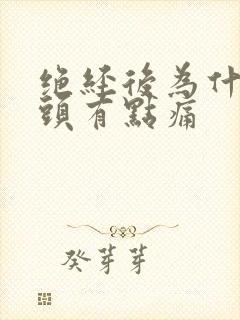 絕經後為什
頭有點痛
癸芽芽